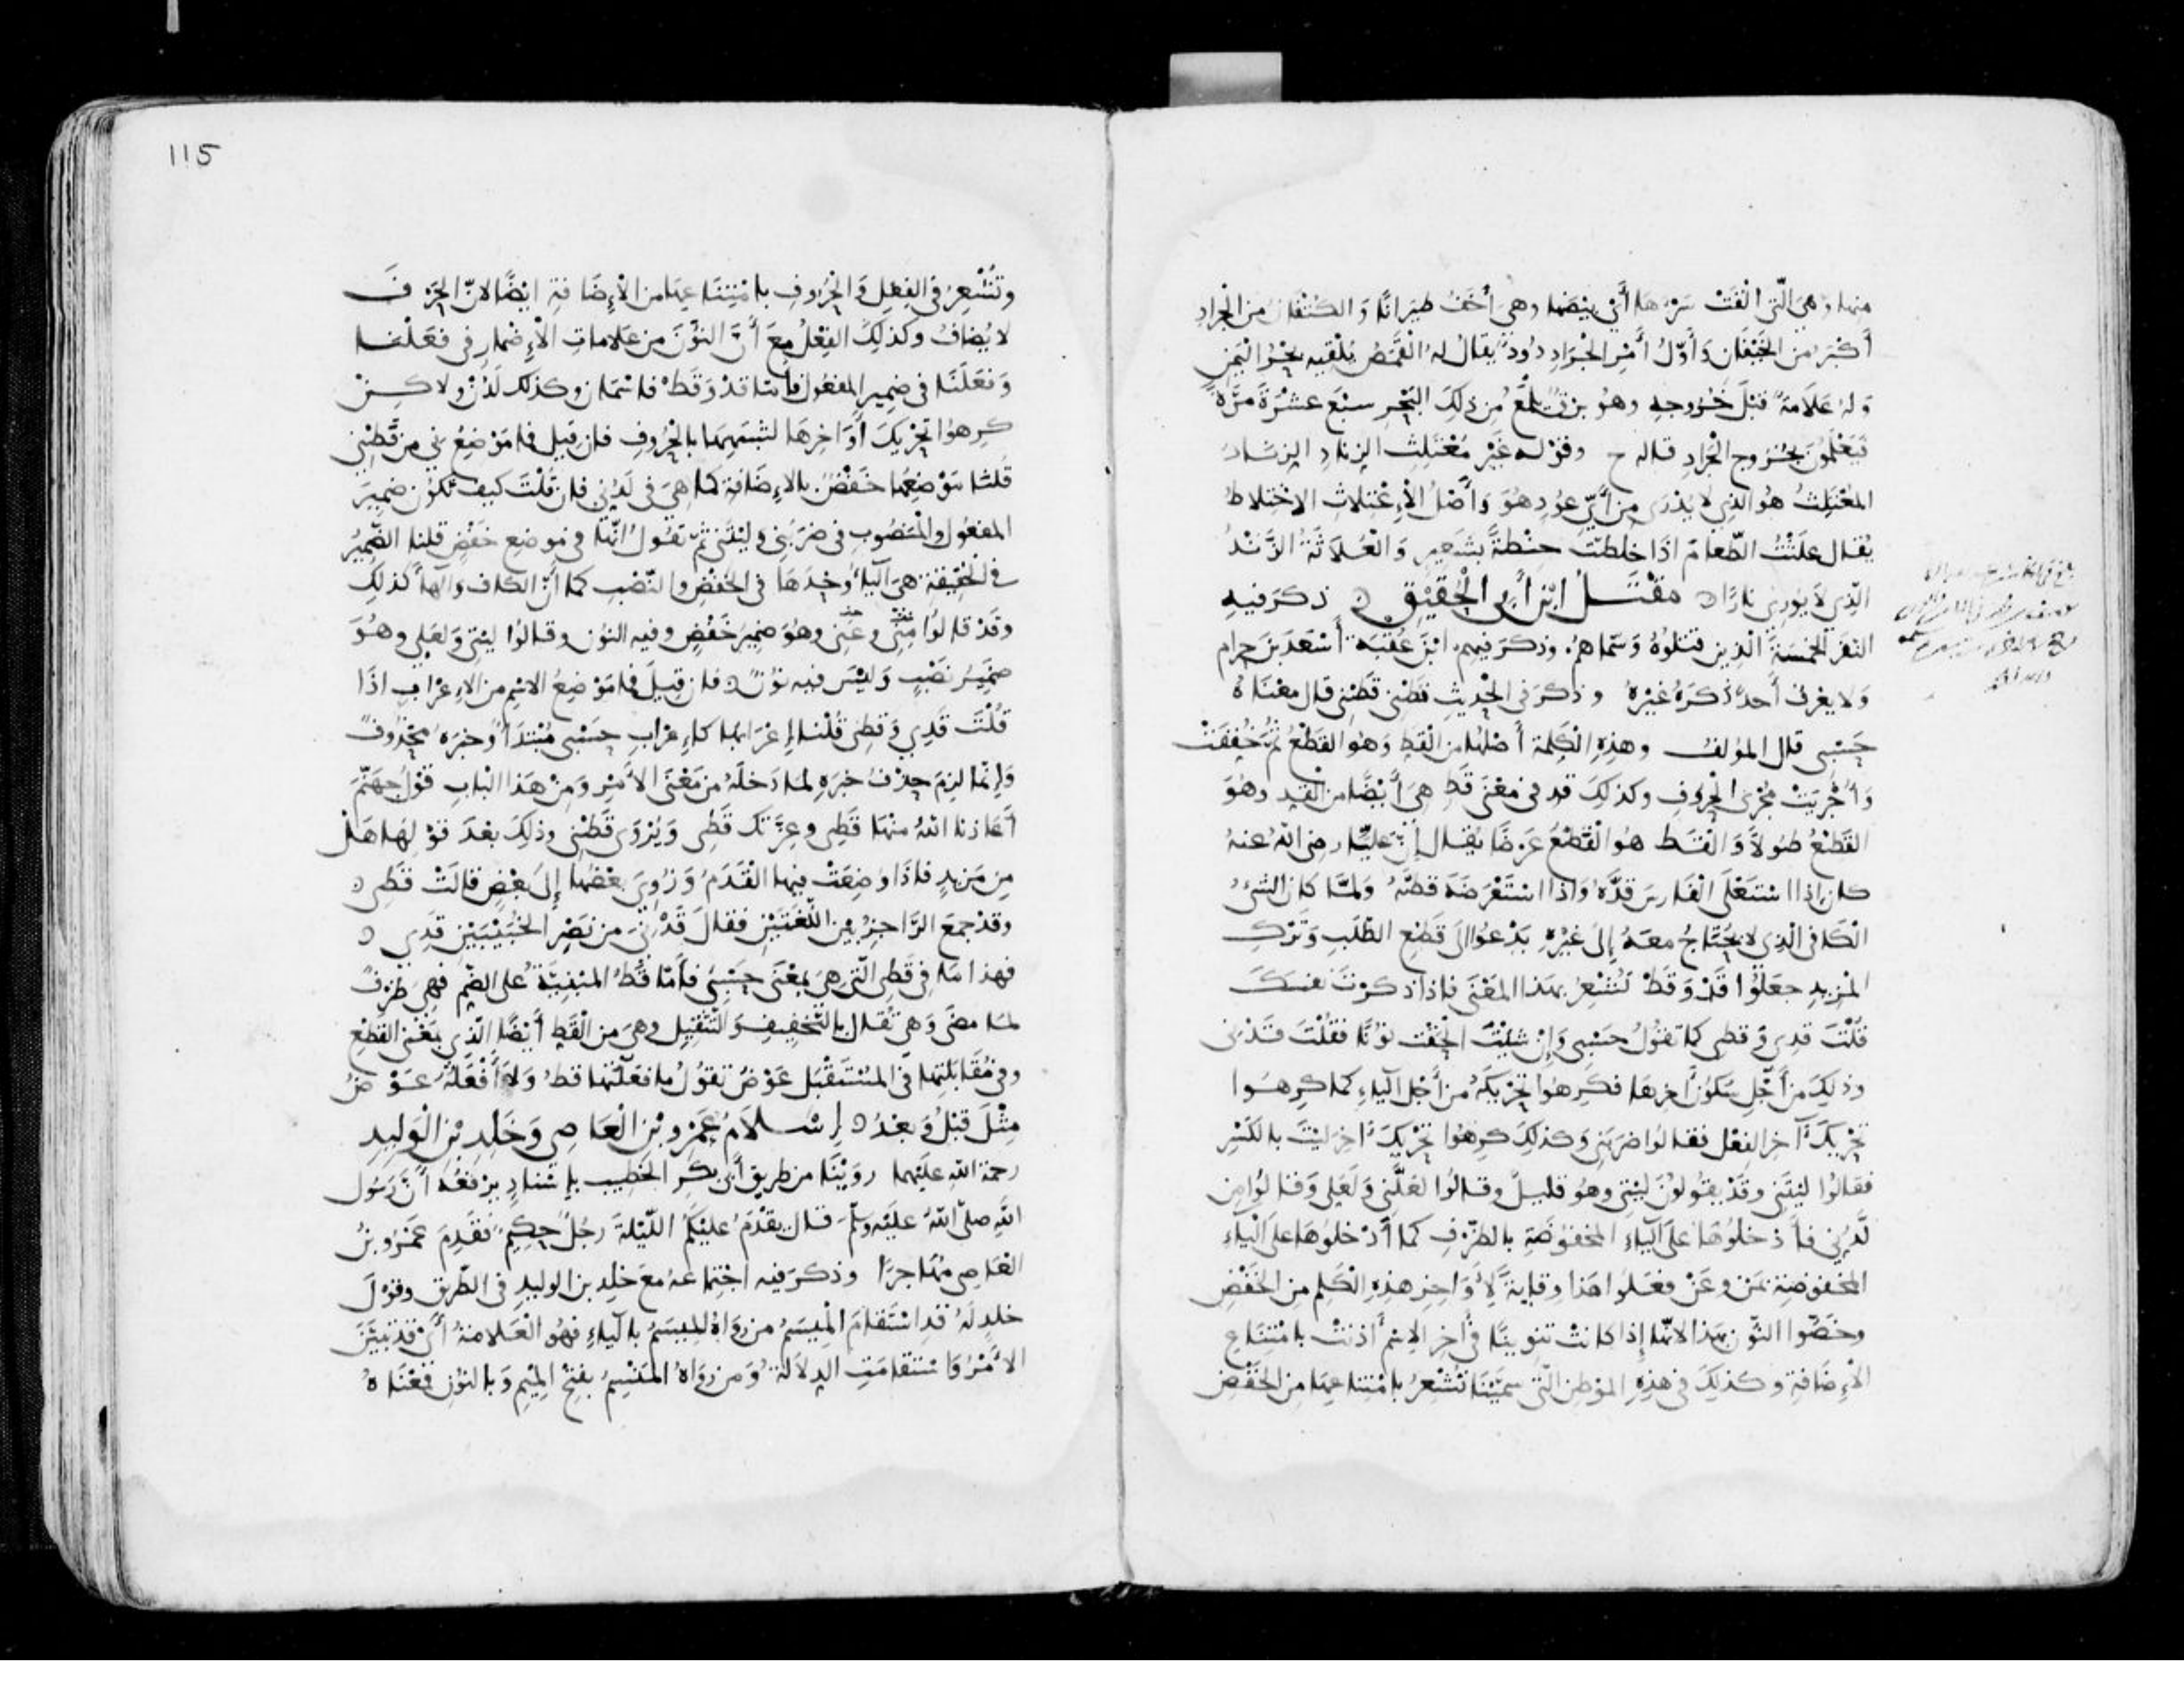 منها وهي التي ألقت سرءها أي بيضها وهي أخف طيرانا والكتفان من الجراد
أكبر من الخيفان وأول أمر الجراد دود يقال له القمص يلقيه بحر اليمن
وله علامة قبل خروجه وهو برق يلمع من ذلك البحر سبع عشرة مرة
فيعلمون بخروج الجراد قاله ح وقوله غير معتلث الزناد الزناد
المعتلث هو الذي لا يدرى من أي عود هو وأصل الاعتلاث الاختلاط
يقال علثت الطعام اذا خلطت حنطة بشعير والعلاثة الزند
الذي لا يوري نارا مقتل ابن أبي الحقيق ذكر فيه
النفر الخمسة الذين قتلوه وسماهم وذكر فيهم ابن عقبة أسعد بن حرام
ولا يعرف أحد ذكره غيره وذكر في الحديث قطني قطني قال معناه
حسبي قال المؤلف وهذه الكلمة أصلها من القط وهو القطع ثم خففت
وأجريت مجرى الحروف وكذلك قد في معنى قط هي أيضا من القد وهو
القطع طولا والقط هو القطع عرضا يقال إن عليا رضي الله عنه
كان إذا استعلى الفارس قده واذا استعرضه قطه ولما كان الشيء
الكافي الذي لا يحتاج معه إلى غيره يدعوا الى قطع الطلب وترك
المزيد جعلوا قد وقط تشعر بهذا المعنى فاذا ذكرت نفسك
قلت قدي وقطي كما تقول حسبي وإن شئت الحقت نونا فقلت قدني
وذلك من أجل سكون آخرها فكرهوا تحريكه من أجل الياء كما كرهوا
تحريك آخر الفعل فقالوا ضربني وكذلك كرهوا تحريك آخر ليت بالكسر
فقالوا ليتني وقد يقولون ليتي وهو قليل وقالوا لعلني ولعلي وقالوا من
لدني فأدخلوها على الياء المخفوضة بالظرف كما أدخلوها على الياء
المخفوضة بمن وعن فعلوا هذا وقاية لأواخر هذه الكلم من الخفض
وخصوا النون بهذا لانها إذا كانت تنوينا في آخر الاسم أذنت بامتناع
الإضافة وكذلك في هذه المواطن التي سمينا تشعر بامتناعها من الخفض
115
وتشعر في الفعل والحروف بامتناعها من الإضافة ايضا لان الحرف
لا يضاف وكذلك الفعل مع أن النون من علامات الإضمار في فعلنا
وفعلنا في ضمير المفعول فأما قد وقط فاسمان وكذلك لدن ولاكن
كرهوا تحريك أواخرها لشبهها بالحروف فان قيل فما موضع ني من قطني
قلنا موضعها خفض بالإضافة كما هي في لدني فان قلت كيف تكون ضمير
المفعول والمنصوب في ضربني وليتني ثم تقول انها في موضع خفض قلنا الضمير
في الحقيقة هي الياء وحدها في الخفض والنصب كما أن الكاف والهاء كذلك
وقد قالوا مني وعني وهو ضمير خفض وفيه النون وقالوا ليتي ولعلي وهو
ضمير نصب وليس فيه نون فان قيل فما موضع الاسم من الاعراب اذا
قلت قدي وقطي قلنا إعرابها كاعراب حسبي مبتدأ وخبره محذوف
وإنما لزم حذف خبره لما دخله من معنى الأمر ومن هذا الباب قول جهنم
أعاذنا الله منها قطي وعزتك قطي ويروى قطني وذلك بعد قولها هل
من مزيد فاذا وضعت فيها القدم وزوي بعضها إلى بعض قالت قطي
وقد جمع الراجز بين اللغتين فقال قدني من نصر الخبيبين قدي
فهذا ما في قطي التي هي بمعنى حسبي فأما قط المبنية على الضم فهي ظرف
لما مضى وهي تقال بالتخفيف والتثقيل وهي من القط أيضا الذي بمعنى القطع
وفي مقابلتها في المستقبل عوض تقول ما فعلتها قط ولا أفعله عوض
مثل قبل وبعد إسلام عمرو بن العاصي وخلد بن الوليد
رحمة الله عليهما روينا من طريق أبي بكر الخطيب بإسناد يرفعه أن رسول
الله صلى الله عليه وسلم قال يقدم عليكم الليلة رجل حكيم فقدم عمرو بن
العاصي مهاجرا وذكر فيه اجتماعه مع خلد بن الوليد في الطريق وقول
خلد له قد استقام الميسم من رواه الميسم بالياء فهو العلامة أي قد تبين
الأمر واستقامت الدلالة ومن رواه المنسم بفتح الميم وبالنون فمعناه